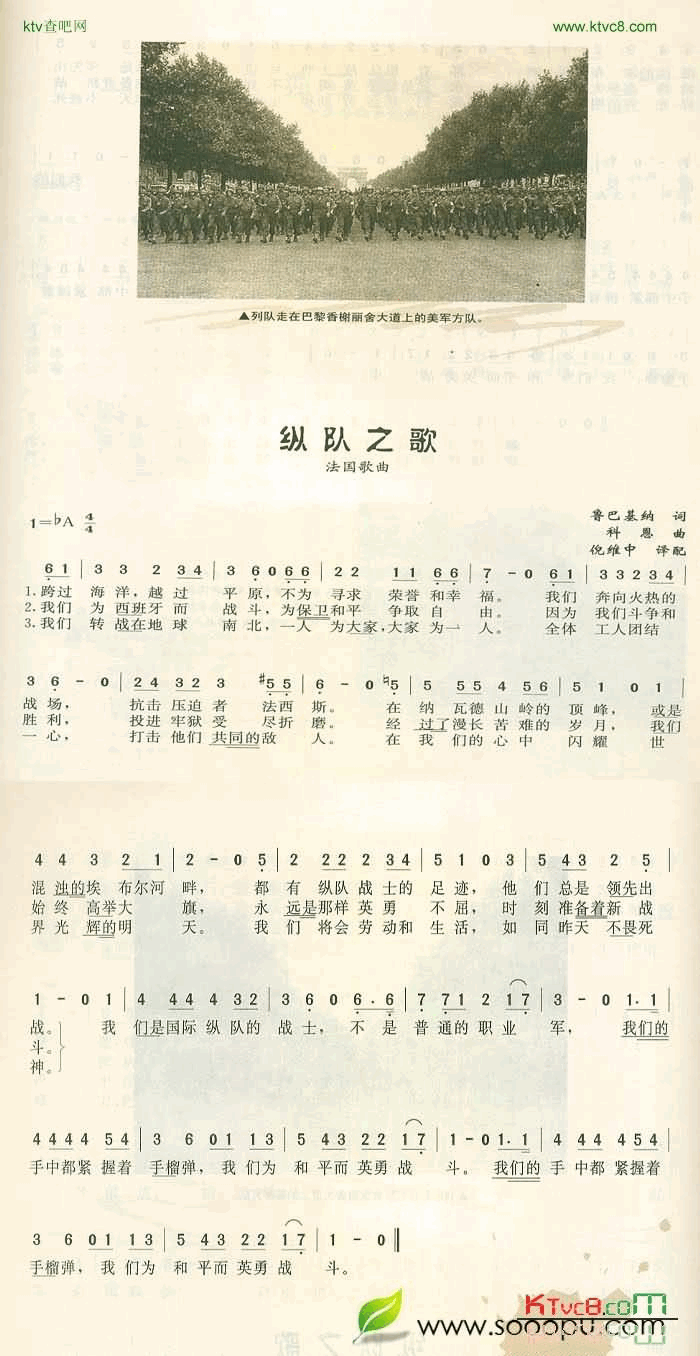 ktv查吧网 www.ktvc8.com
▲列队走在巴黎香榭丽舍大道上的美军方队。
纵队之歌
法国歌曲
1=♭A 4/4
鲁巴基纳 词
科恩 曲
倪维中 译配
6 1 | 3 3 3 2 3 4 | 3 6 0 6 6 | 2 2 2 1 1 6 6 | 7 - 0 6 1 | 3 3 2 3 3 4 |
1.跨过 海洋,越过 平原,不为 寻求 荣誉和幸福。 我们 奔向火热的
2.我们 为西班牙而 战斗,为保卫和平 争取自由。 因为 我们斗争和
3.我们 转战在地球 南北,一人 为大家,大家为一人。 全体 工人团结
3 6 - 0 | 2 4 3 2 3 #5 5 | 6 - 0 ♮5 | 5 5 4 5 6 | 5 1 0 1 |
战场, 抗击压迫者 法西斯。 在纳瓦德山岭的顶峰,或是
胜利, 投进牢狱受 尽折磨。 经过了漫长苦难的岁月,我们
一心, 打击他们共同的敌人。 在我们的心中 闪耀 世
4 4 3 2 1 | 2 - 0 5 | 2 2 2 2 3 4 | 5 1 0 3 | 5 4 3 2 5 |
混浊的埃布尔河畔, 都有纵队战士的足迹,他们总是领先出
始终高举大旗, 永远是那样英勇不屈,时刻准备着新战
界光辉的明天。 我们将会劳动和生活,如同昨天不畏死
1 - 0 1 | 4 4 4 4 3 2 | 3 6 0 6. 6 | 7 7 1 2 1 7 | 3 - 0 1. 1 |
战。 我们是国际纵队的战士,不是普通的职业军, 我们的
斗。
神。
4 4 4 4 5 4 | 3 6 0 1 1 3 | 5 4 3 2 2 1 7 | 1 - 0 1. 1 | 4 4 4 4 5 4 |
手中都紧握着 手榴弹,我们为 和平而英勇战斗。 我们的 手中都紧握着
3 6 0 1 1 3 | 5 4 3 2 2 1 7 | 1 - 0 ‖
手榴弹,我们为 和平而英勇战斗。
KTvc8.com
www.sooopu.com